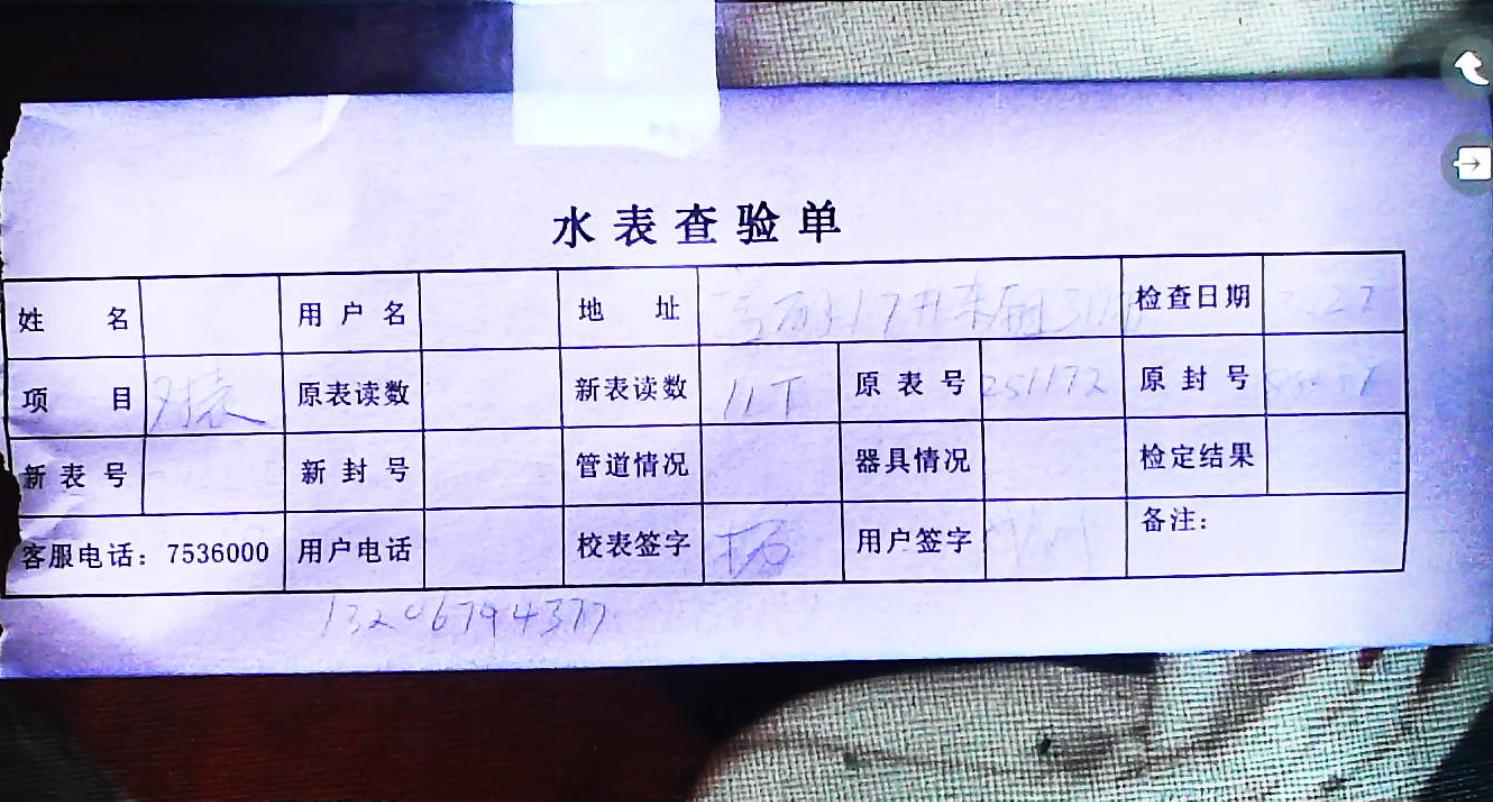 水表查验单
姓名 用户名 地址 检查日期
项目 对表 原表读数 新表读数 11T 原表号 251172 原封号
新表号 新封号 管道情况 器具情况 检定结果
客服电话：7536000 用户电话 校表签字 用户签字 备注：
13206794377